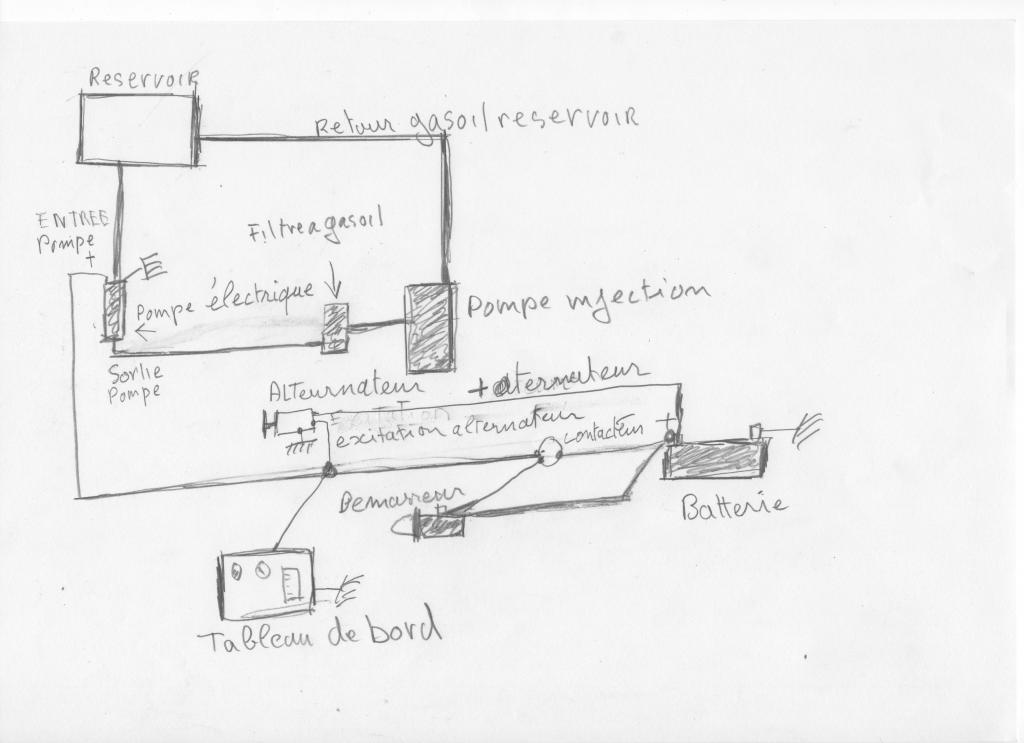 Reservoir
Retour gasoil reservoir
ENTREE
Pompe
+
Filtre a gasoil
Pompe électrique
Pompe injection
Sortie
Pompe
ALTeurnateur
+ alternateur
Exitation
excitation alternateur
contacteur
+
Demarreur
Batterie
Tableau de bord